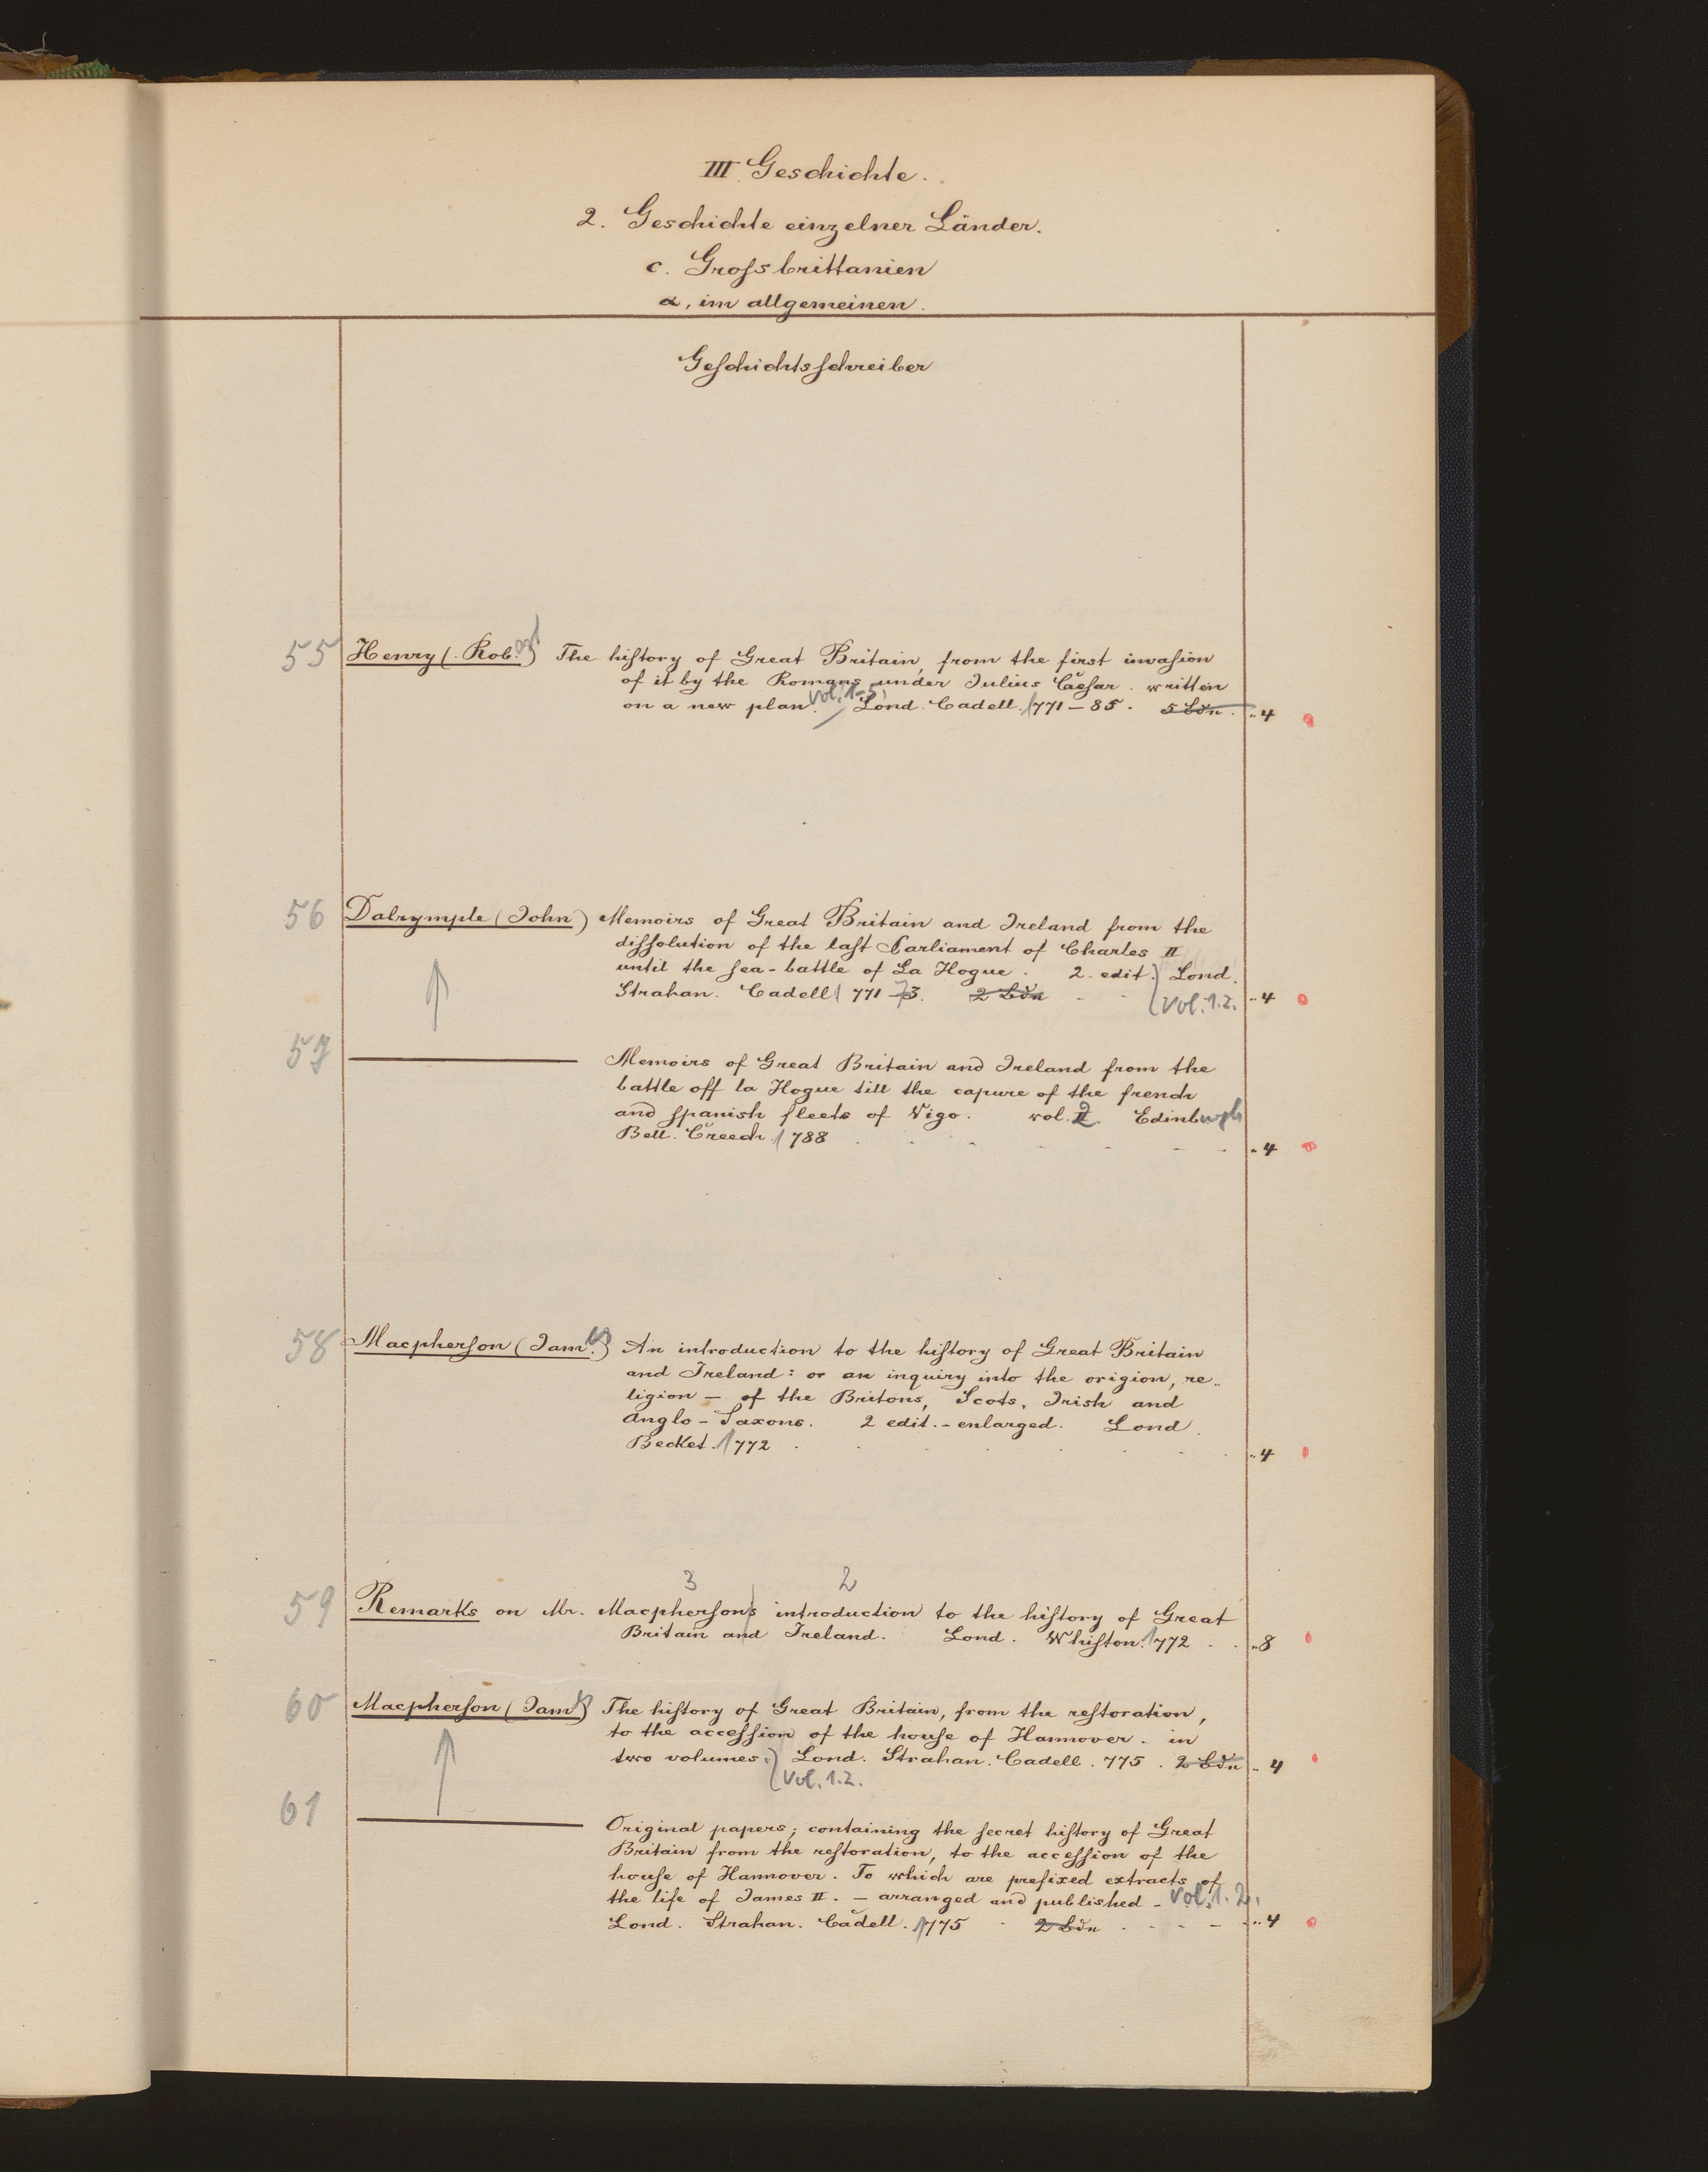 III Geschichte.
2. Geschichte einzelner Länder.
c. Grossbrittanien
α, im allgemeinen.
Geschichtsschreiber
55 Henry (Rob.ert) The history of Great Britain, from the first invasion
of it by the Romans under Julius Caesar. written
on a new plan. Vol. 1-5. Lond. Cadell. 1771-85. 5 Bdn. „4
56 Dalrymple (John) Memoirs of Great Britain and Ireland from the
dissolution of the last Parliament of Charles II
until the sea-battle of La Hogue. 2. edit. Lond.
Strahan. Cadell 1771-73. 2 Bdn Vol. 1.2. „4
57 ——— Memoirs of Great Britain and Ireland from the
battle off la Hogue till the capure of the french
and spanish fleets of Vigo. vol. 2. Edinburgh
Bell. Creech. 1788 „4
58 Macpherson (Jam.es) An introduction to the history of Great Britain
and Ireland: or an inquiry into the origion, re-
ligion – of the Britons, Scots, Irish and
Anglo-Saxons. 2 edit. - enlarged. Lond.
Becket. 1772 „4
3 2
59 Remarks on Mr. Macpherson's introduction to the history of Great
Britain and Ireland. Lond. Whiston. 1772 „8
60 Macpherson (James) The history of Great Britain, from the restoration,
to the accession of the house of Hannover. in
two volumes. Lond. Strahan. Cadell. 775. 2 Bdn „4
Vol. 1.2.
61 ——— Original papers; containing the secret history of Great
Britain from the restoration, to the accession of the
house of Hannover. To which are prefixed extracts of
the life of James II. – arranged and published – Vol. 1. 2.
Lond. Strahan. Cadell. 1775 2 Bdn „4